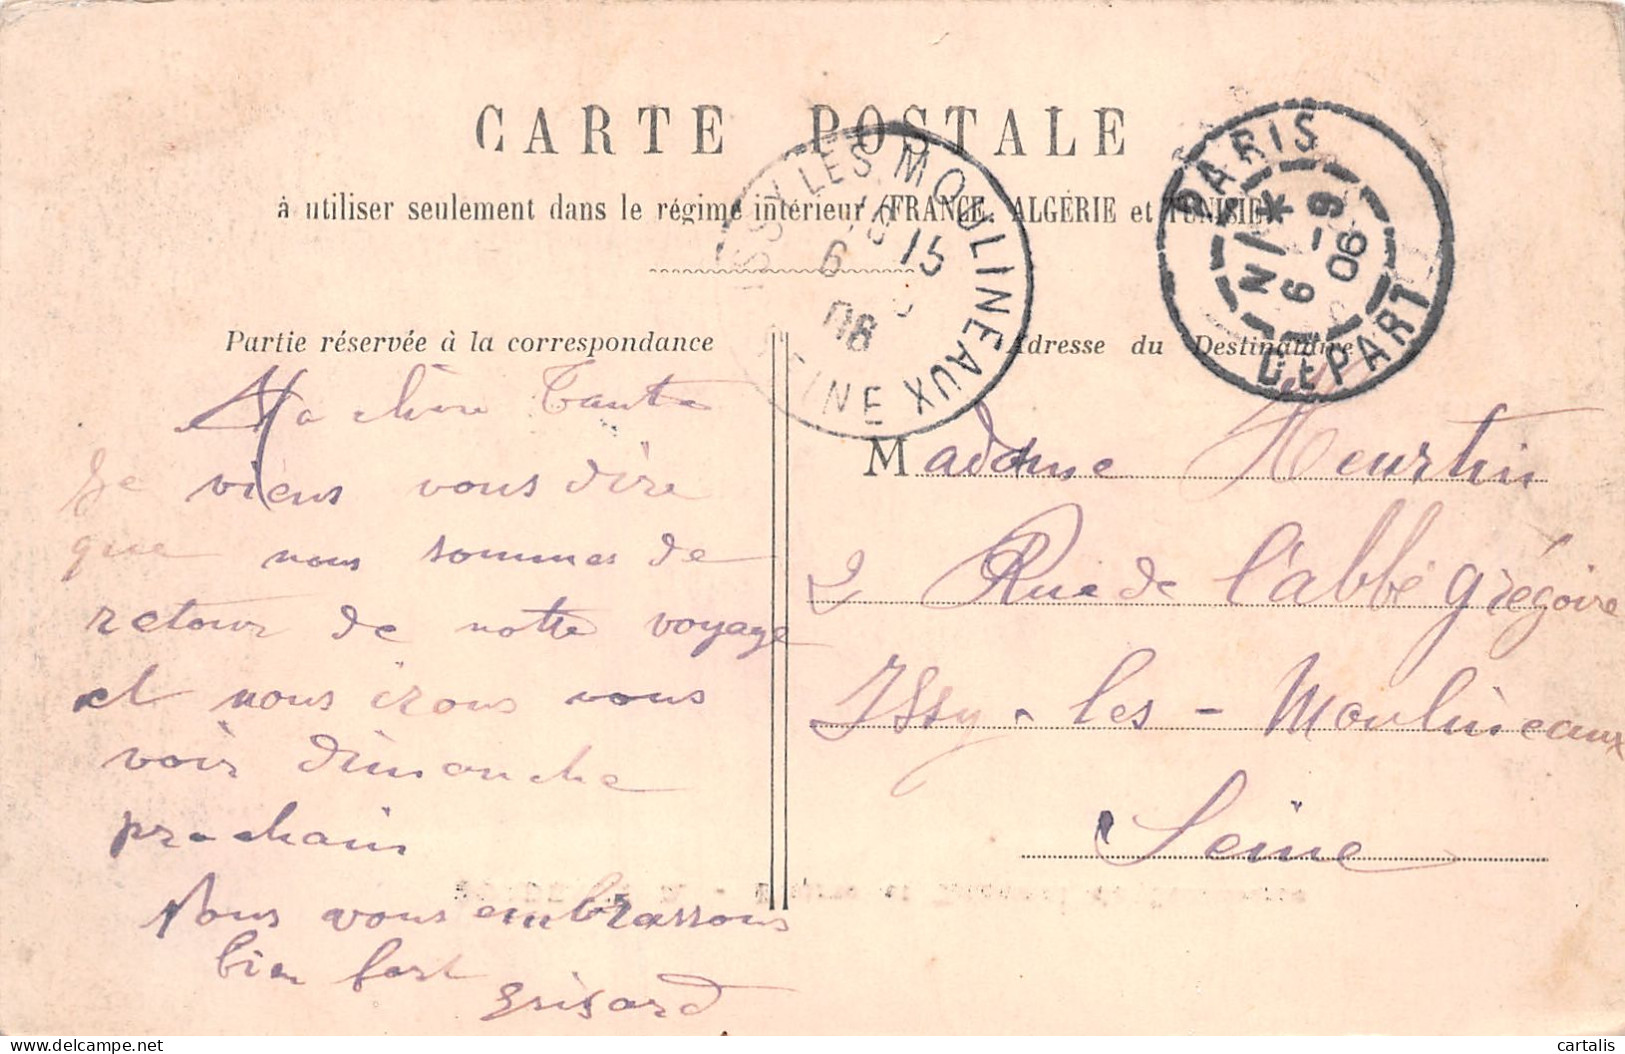 CARTE POSTALE
à utiliser seulement dans le régime intérieur (FRANCE, ALGÉRIE et TUNISIE)
ISSY LES MOULINEAUX
6 15
SEINE
PARIS
N/*
6 - 9
06
DEPART
Partie réservée à la correspondance
Ma chère Tante
Je viens vous dire
que nous sommes de
retour de notre voyage
et nous irons vous
voir dimanche
prochain
Nous vous embrassons
bien fort
Grisard
Adresse du Destinataire
Madame Heurtin
2 Rue de l'abbé grégoire
Issy-les-Moulineaux
Seine
www.delcampe.net
cartalis